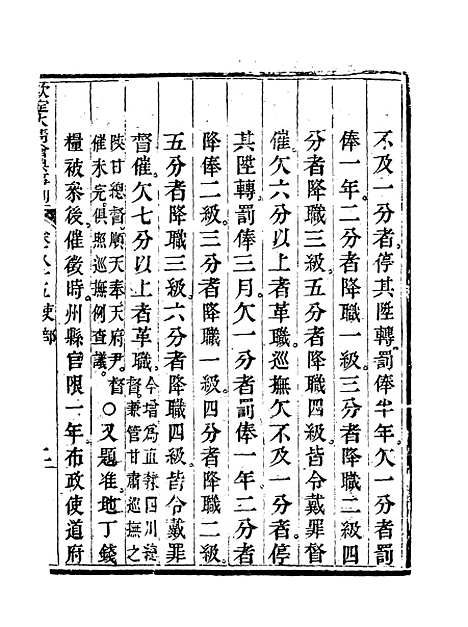 不及一分者停其陞轉罰俸半年欠一分者罰
俸一年二分者降職一級三分者降職二級四
分者降職三級五分者降職四級皆令戴罪督
催欠六分以上者革職巡撫欠不及一分者停
其陞轉罰俸三月欠一分者罰俸一年二分者
降俸二級三分者降職一級四分者降職二級
五分者降職三級六分者降職四級皆令戴罪
督催欠七分以上者革職今增爲直隸四川總督兼管甘肅巡撫之
陝甘總督順天奉天府尹督催未完俱照巡撫例查議○又題准地丁錢
糧被叅後催徵時州縣官限一年布政使道府
欽定大清會典事例 卷八十五吏部